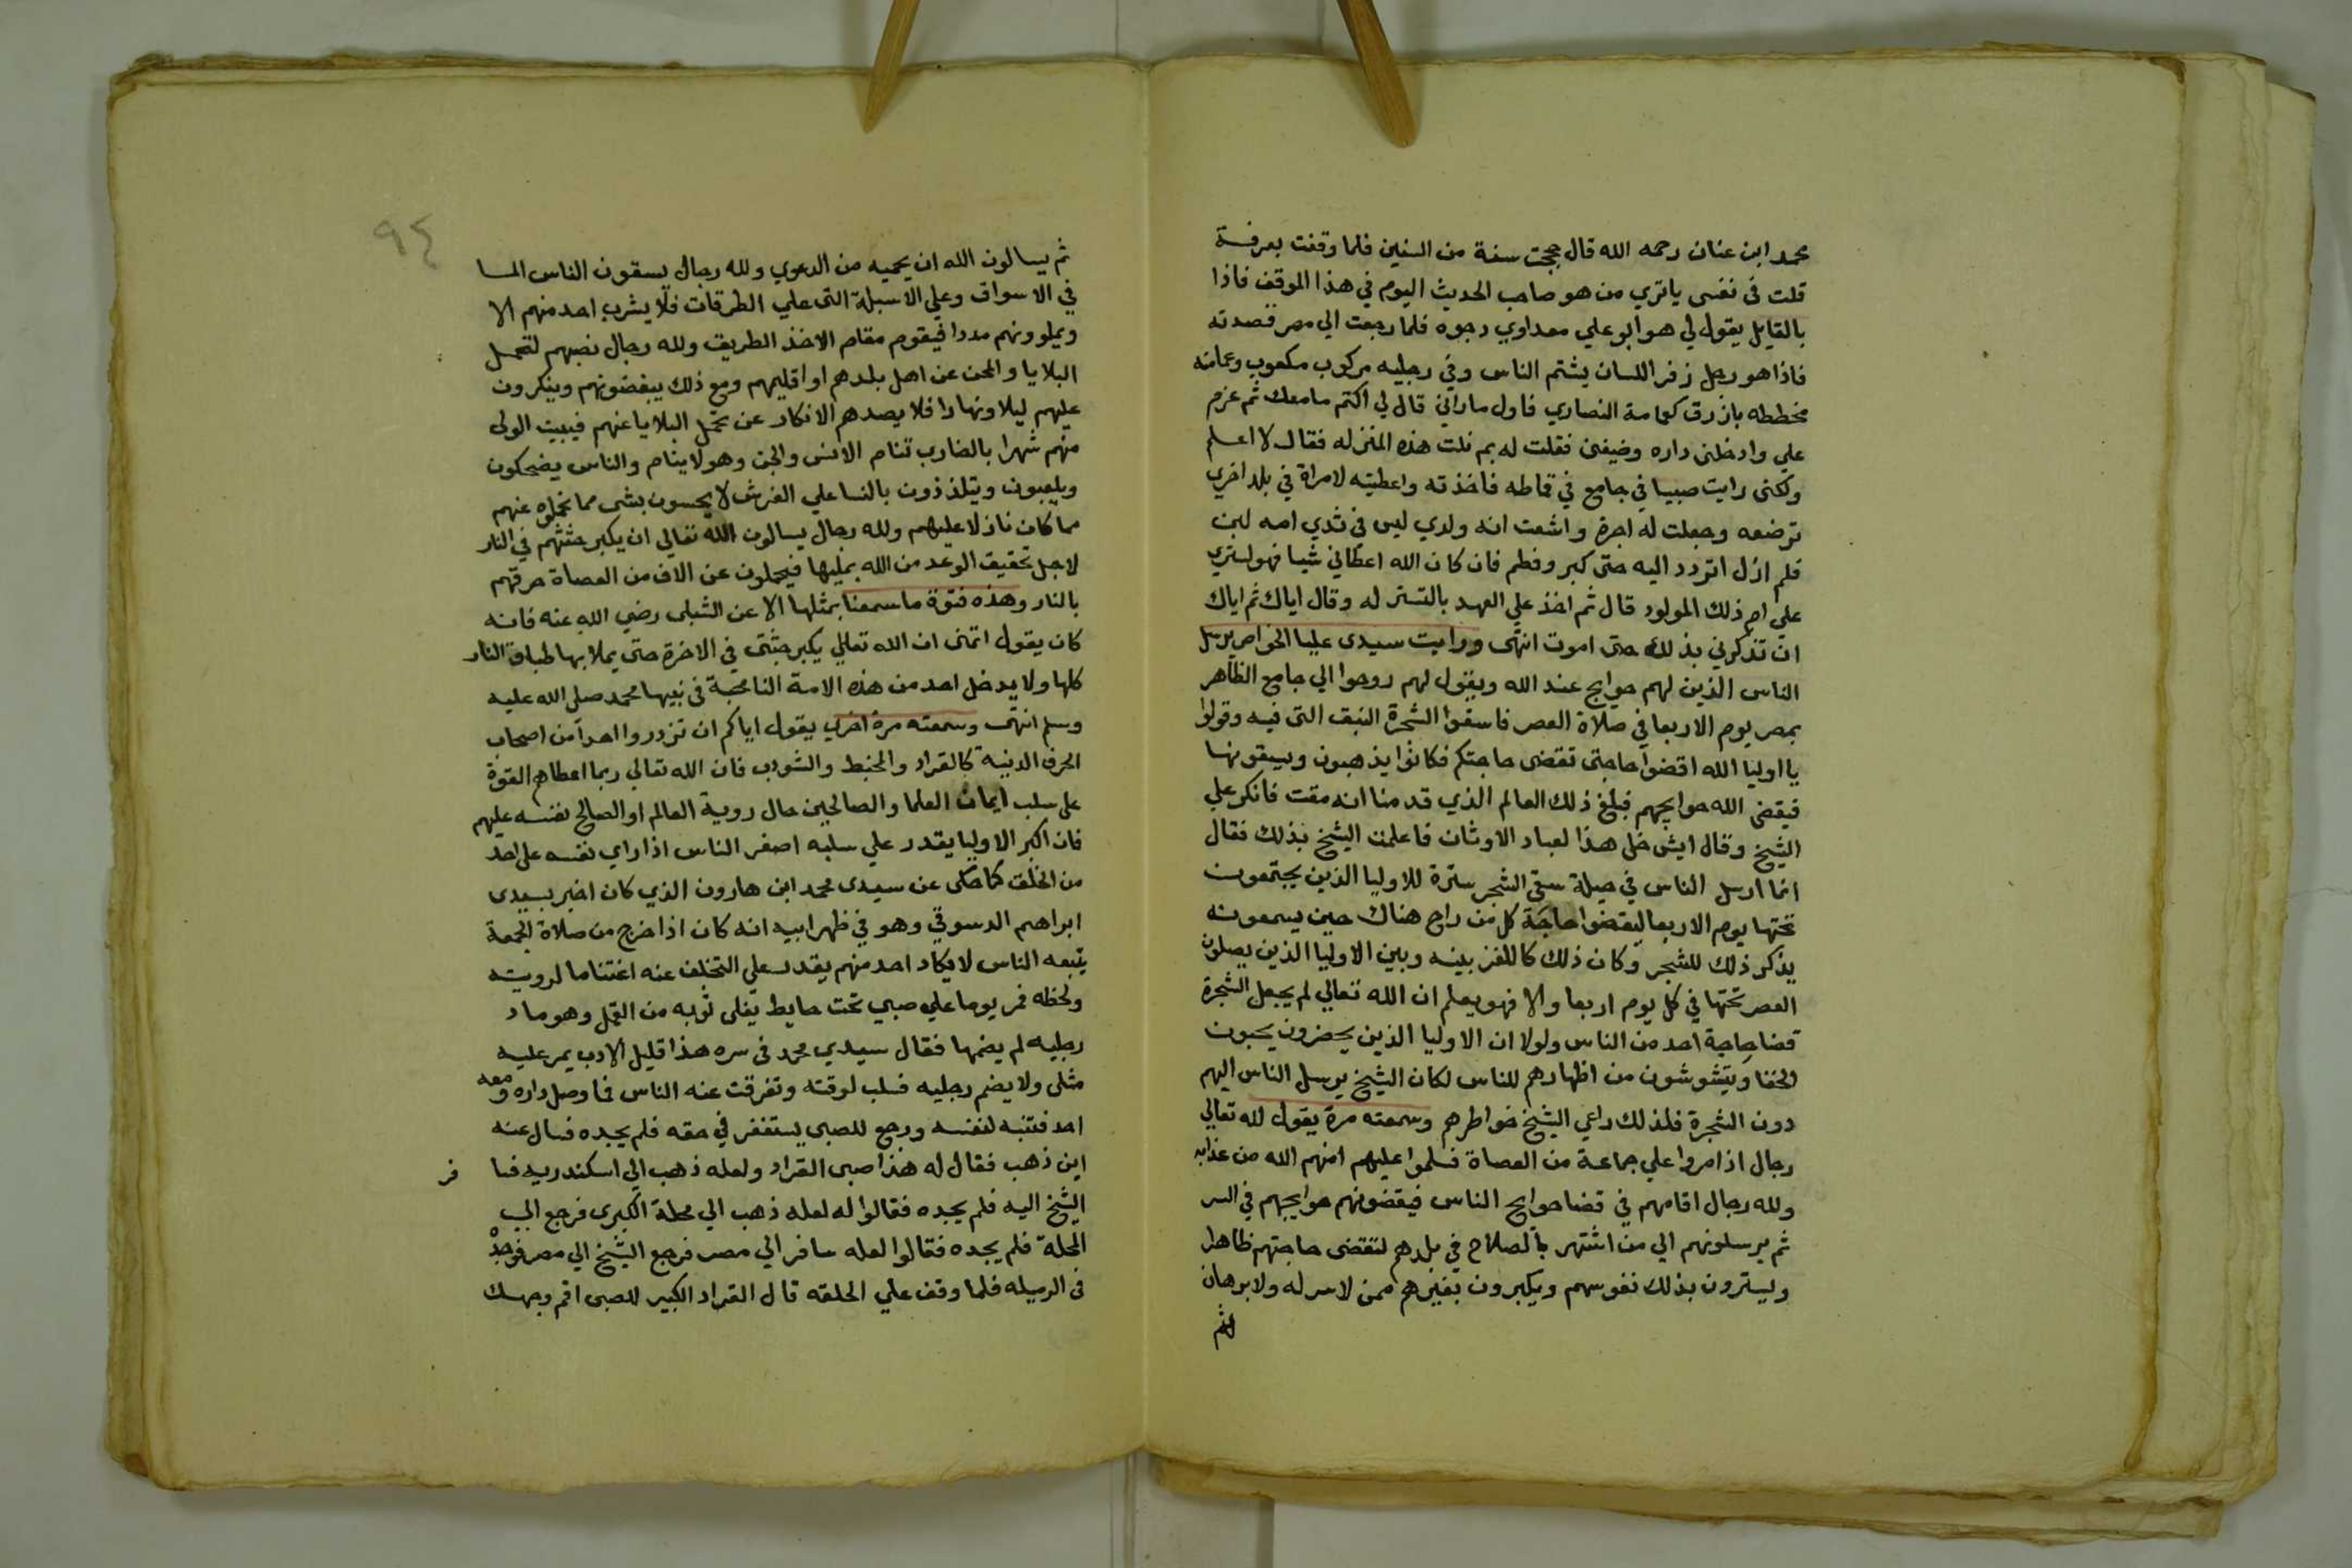 محمد ابن عنان رحمه الله قال حججت سنة من السنين فلما وقفت بعرفة
قلت في نفسي يا تري من هو صاحب الحديث اليوم في هذا الموقف فاذا
بالقايل يقول لي هو ابو علي معداوي دجوه فلما رجعت الي مصر قصدته
فاذا هو رجل زفر اللسان يشتم الناس وفي رجليه مركوب مكعوب وعمامته
مخططه بازرق كعمامة النصاري فاول ما راني قال لي اكتم ما معك ثم عزم
علي وادخلني داره وضيفني فقلت له بم نلت هذه المنزله فقال لا اعلم
ولكني رايت صبيا في جامع في قماطه فاخذته واعطيته لامراة في بلد اخري
ترضعه وجعلت له اجرة واشعت انه ولدي ليس في ثدي امه لبن
فلم ازل اتردد اليه حتي كبر وفطم فان كان الله اعطاني شيا فهو لستري
علي ام ذلك المولود قال ثم اخذ علي العهد بالتستر له وقال اياك ثم اياك
ان تذكرني بذلك حتي اموت انتهي ورايت سيدي عليا الخواص يرسل
الناس الذين لهم حوايج عند الله ويقول لهم روحوا الي جامع الظاهر
بمصر يوم الاربعا في صلاة العصر فاسقوا الشجرة النبق التي فيه وقولوا
يا اوليا الله اقضوا حاجتي تقضي حاجتكم فكانوا يذهبون ويسقونها
فيقضي الله حوايجهم فبلغ ذلك العالم الذي قدمنا انه مقت فانكر علي
الشيخ وقال ايش خل هذا لعباد الاوثان فاعلمت الشيخ بذلك فقال
انما ارسل الناس في حيلة سقي الشجر سترة للاوليا الذين يجتمعون
تحتها يوم الاربعا ليقضوا حاجة كل من راح هناك حين يسمعونه
يذكر ذلك للشجر وكان ذلك كاللغز بينه وبين الاوليا الذين يصلون
العصر تحتها في كل يوم اربعا والا فهو يعلم ان الله تعالي لم يجعل الشجرة
قضا حاجة احد من الناس ولولا ان الاوليا الذين يحضرون يحبون
الخفا ويتشوشون من اظهارهم للناس لكان الشيخ يرسل الناس اليهم
دون الشجرة فلذلك راعي الشيخ خواطرهم وسمعته مرة يقول لله تعالي
رجال اذا مروا علي جماعة من العصاة فسلموا عليهم امنهم الله من عذابه
ولله رجال اقامهم في قضا حوايج الناس فيقضونهم حوايجهم في السر
ثم يرسلونهم الي من اشتهر بالصلاح في بلدهم لتقضي حاجتهم ظاهرا
ويسترون بذلك نفوسهم ويكبرون بغيرهم ممن لا سر له ولا برهان
ثم
٩٤
ثم يسالون الله ان يحميه من الدعوي ولله رجال يسقون الناس الما
في الاسواق وعلي الاسبلة التي علي الطرقات فلا يشرب احد منهم الا
ويملونهم مددا فيقوم مقام الاخذ الطريق ولله رجال نصبهم لتحمل
البلايا والمحن عن اهل بلدهم او اقليمهم ومع ذلك يبغضونهم وينكرون
عليهم ليلا ونهارا فلا يصدهم الانكار عن تحمل البلايا عنهم فيبيت الولي
منهم شهرا بالضارب تنام الانس والجن وهو لا ينام والناس يضحكون
ويلعبون ويتلذذون بالنسا علي الفرش لا يحسون بشي مما تحملوه عنهم
مما كان نازلا عليهم ولله رجال يسالون الله تعالي ان يكبر جثثهم في النار
لاجل تحقيق الوعد من الله بمليها فيحملون عن الاف من العصاة حرقهم
بالنار وهذه فتوة ما سمعنا بمثلها الا عن الشبلي رضي الله عنه فانه
كان يقول اتمني ان الله تعالي يكبر جثتي في الاخرة حتي يملا بها طباق النار
كلها ولا يدخل احد من هذه الامة النار محبة في نبيها محمد صلي الله عليه
وسلم انتهي وسمعته مرة اخري يقول اياكم ان تزدروا احدا من اصحاب
الحرف الدنية كالقراد والمخبط والشوراب فان الله تعالي ربما اعطاهم القوة
علي سلب ايمان العلما والصالحين حال روية العالم او الصالح نفسه عليهم
فان اكبر الاوليا يقدر علي سلبه اصغر الناس اذا راي نفسه علي احد
من الخلق كما حكي عن سيدي محمد ابن هارون الذي كان اخبر بسيدي
ابراهيم الدسوقي وهو في ظهر ابيه انه كان اذا خرج من صلاة الجمعة
يتبعه الناس لا يكاد احد منهم يقدر علي التخلف عنه اغتناما لرويته
ولحظه فمر يوما علي صبي تحت حايط يفلي ثوبه من القمل وهو ماد
رجليه لم يضمها فقال سيدي محمد في سره هذا قليل الادب يمر عليه
مثلي ولا يضم رجليه فسلب لوقته وتفرقت عنه الناس فما وصل داره ومعه
احد فتنبه لنفسه ورجع للصبي يستغفر في حقه فلم يجده فسال عنه
اين ذهب فقال له هذا صبي القراد ولعله ذهب الي اسكندريه فسا
فر
الشيخ اليه فلم يجده فقالوا له لعله ذهب الي محلة الكبري فرجع الي
المحلة فلم يجده فقالوا لعله سافر الي مصر فرجع الشيخ الي مصر فوجده
في الرميله فلما وقف علي الحلقه قال القراد الكبير للصبي اقم وجهك